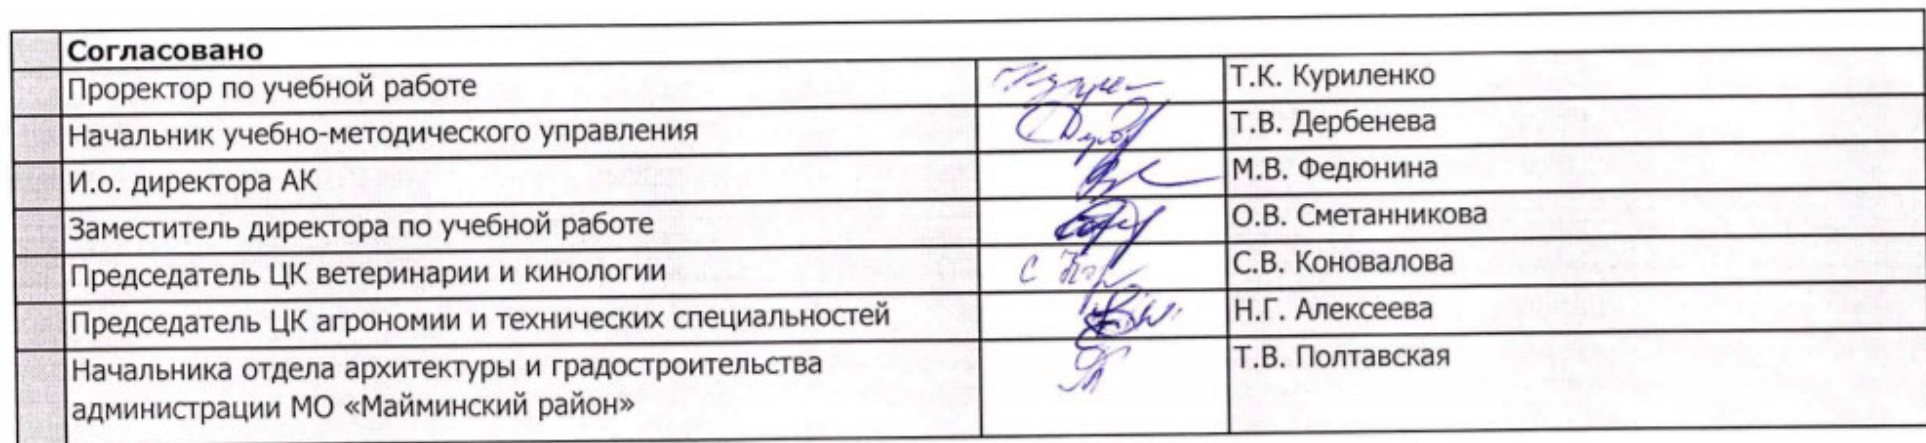 Согласовано
Проректор по учебной работе Т.К. Куриленко
Начальник учебно-методического управления Т.В. Дербенева
И.о. директора АК М.В. Федюнина
Заместитель директора по учебной работе О.В. Сметанникова
Председатель ЦК ветеринарии и кинологии С.В. Коновалова
Председатель ЦК агрономии и технических специальностей Н.Г. Алексеева
Начальника отдела архитектуры и градостроительства Т.В. Полтавская
администрации МО «Майминский район»